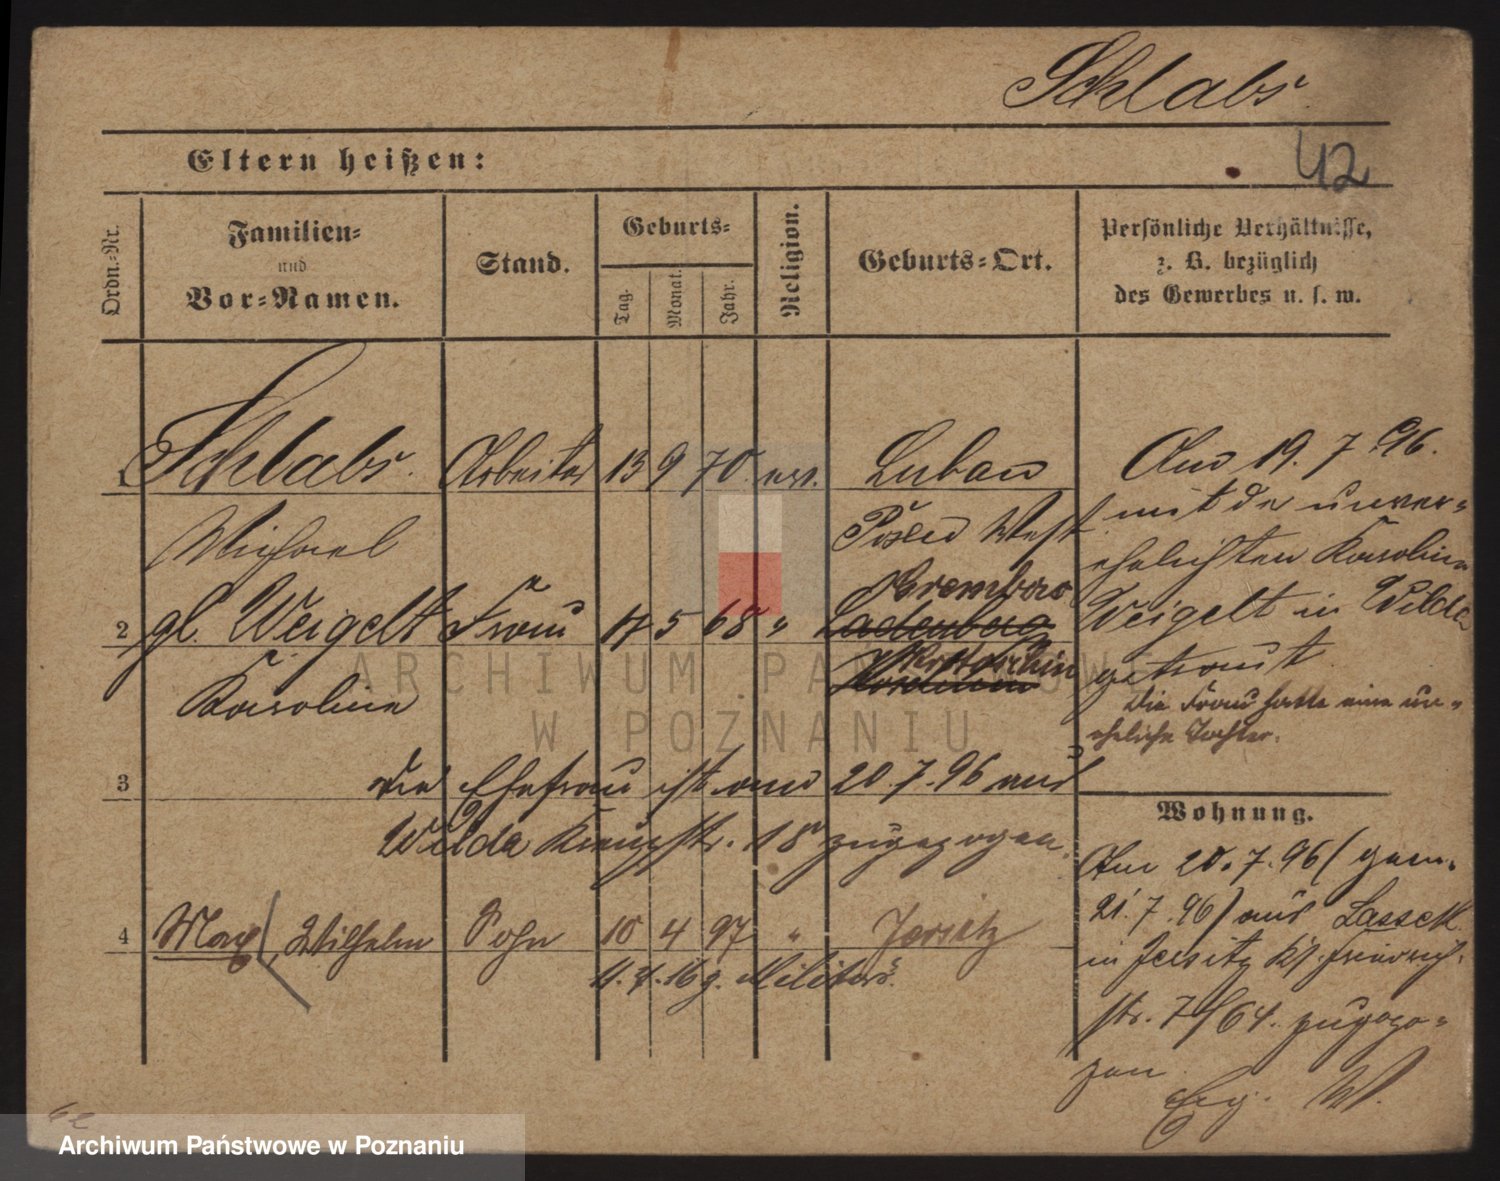 Schlabs
Eltern heißen:
42
Ordn.-Nr.
Familien-
und
Vor-Namen.
Stand.
Geburts-
Tag.
Monat.
Jahr.
Religion.
Geburts-Ort.
Persönliche Verhältnisse,
z. B. bezüglich
des Gewerbes u. s. w.
1 Schlabs. Arbeiter 13 9 70 ev. Luban
Michael Posen West
Krembow
2 gb. Weigelt Frau 17 5 68 " Ladenberg
Karoline Krotoschin
Am 19. 7. 96.
mit der unver-
ehelichten Karoline
Weigelt in Wilda
getraut
Die Frau hatte eine un-
eheliche Tochter.
3 die Ehefrau ist am 20.7.96 aus
Wilda Kreuzstr. 18 zugezogen.
4 Max, Wilhelm Sohn 10 4 97 " Jersitz
11. 7. 16 z. Militär.
Wohnung.
Am 20.7.96 (gem.
21.7.96) aus Lassek
in Jersitz Ks. Friedrich-
str. 7/64. zugezo-
gen
W.
62
ARCHIWUM PAŃSTWOWE
W POZNANIU
Archiwum Państwowe w Poznaniu